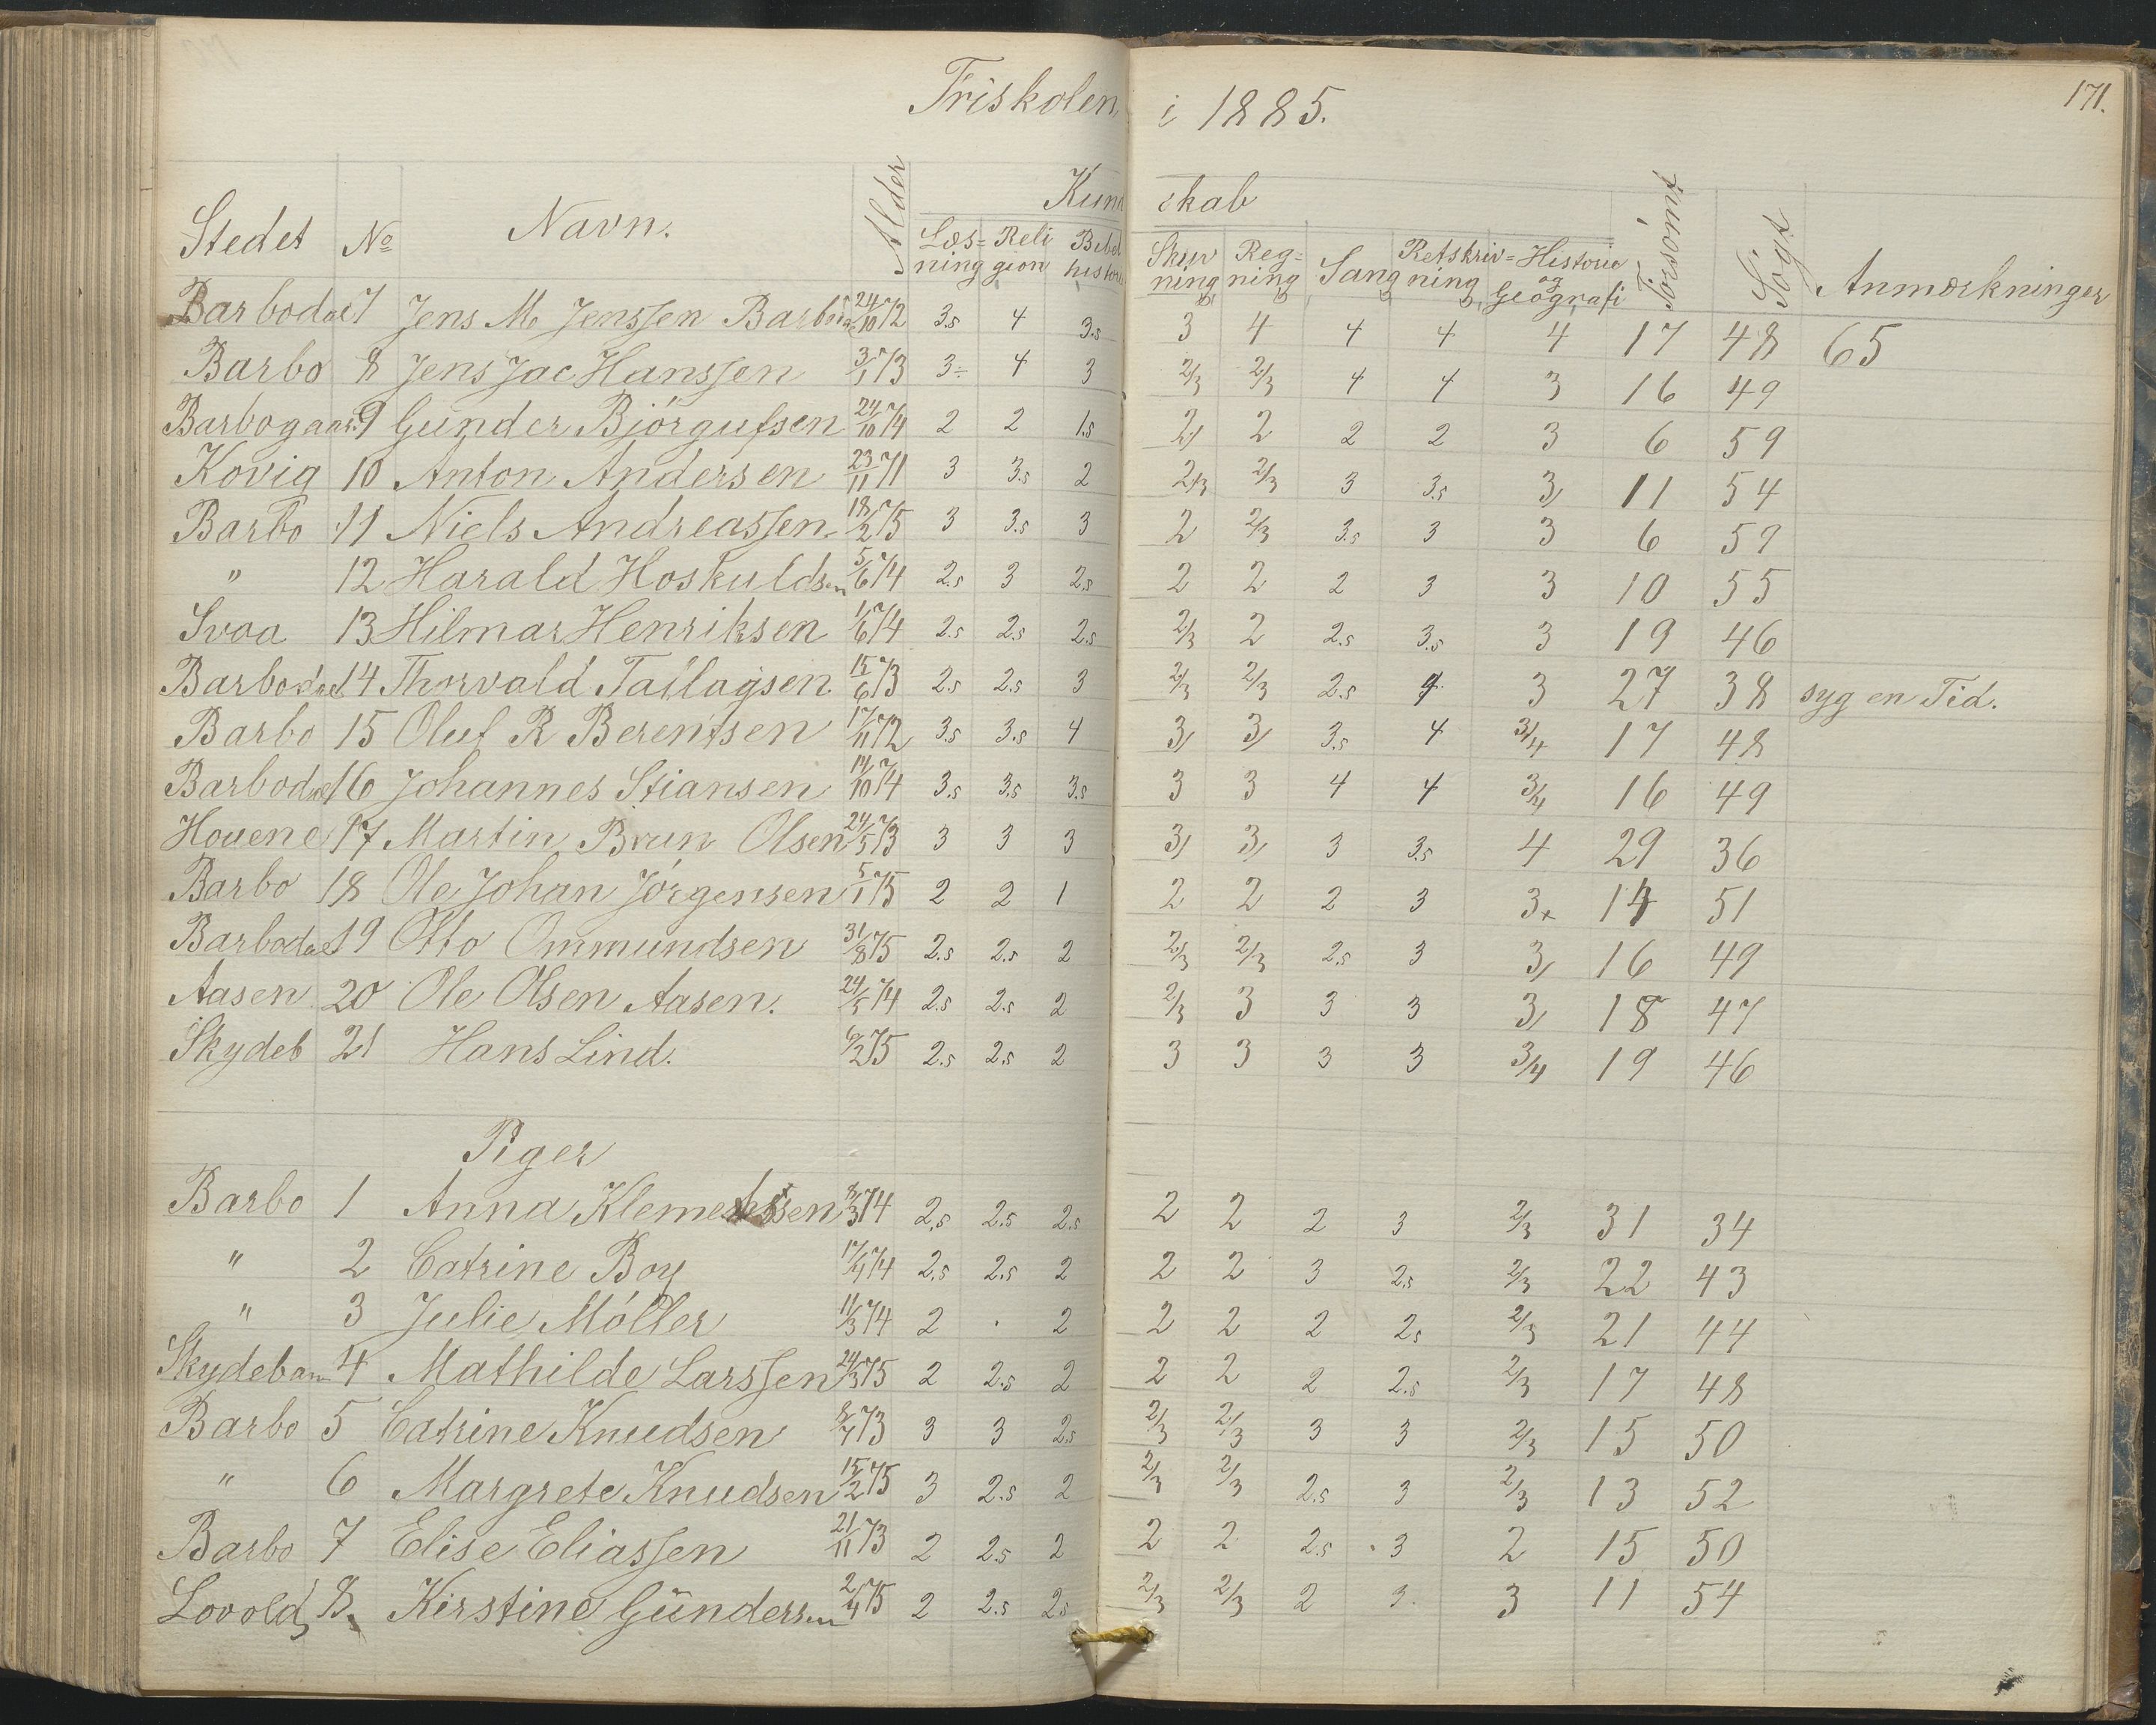 Friskolen i 1885.
171.
Stedet No Navn. Alder Kundskab Forsömt Sögt Anmærkninger
Læs= ning Reli gion Bibel histo Skriv ning Reg= ning Sang Retskriv= ning Historie og Geografi
Barbodal 7 Jens M. Jenssen 24/10 72 3.5 4 3.5 3 4 4 4 4 17 48 65
Barbo 8 Jens Jac Hanssen 3/1 73 3÷ 4 3 2/3 2/3 4 4 3 16 49
Barbogaar. 9 Gunder Bjórgufsen 24/10 74 2 2 1.5 2/ 2 2 2 3 6 59
Kovig 10 Anton Andersen 23/11 71 3 3.5 2 2/3 2/3 3 3.5 3/ 11 54
Barbo 11 Niels Andreassen 18/2 75 3 3.5 3 2 2/3 3.5 3 3 6 59
" 12 Harald Hoskuldsen 5/6 74 2.5 3 2.5 2 2 2 3 3 10 55
Svaa 13 Hilmar Henriksen 1/6 74 2.5 2.5 2.5 2/3 2 2.5 3.5 3 19 46
Barbodal 14 Thorvald Tallagsen 15/6 73 2.5 2.5 3 2/3 2/3 2.5 4 3 27 38 syg en Tid.
Barbo 15 Oluf R Berentsen 17/11 72 3.5 3.5 4 3/ 3/ 3.5 4 3/4 17 48
Barbodal 16 Johannes Stiansen 14/10 74 3.5 3.5 3.5 3 3 4 4 3/4 16 49
Houene 17 Martin Brun Olsen 24/5 73 3 3 3 3/ 3/ 3 3.5 4 29 36
Barbo 18 Ole Johan Jórgensen 5/1 75 2 2 1 2 2 2 3 3+ 14 51
Barbodal 19 Otto Ommundsen 31/8 75 2.5 2.5 2 2/3 2/3 2.5 3 3/ 16 49
Aasen 20 Ole Olsen Aasen. 24/5 74 2.5 2.5 2 2/3 3 3 3 3/ 18 47
Skydeb 21 Hans Lind. 6/2 75 2.5 2.5 2 3 3 3 3 3/4 19 46
Piger
Barbo 1 Anna Klemetsen 8/3 74 2.5 2.5 2.5 2 2 2 3 2/3 31 34
" 2 Catrine Boy 17/4 74 2.5 2.5 2 2 2 3 2.5 2/3 22 43
" 3 Julie Móller 11/3 74 2 . 2 2 2 2 2.5 2/3 21 44
Skydeban 4 Mathilde Larssen 24/3 75 2 2.5 2 2 2 2 2.5 2/3 17 48
Barbo 5 Catrine Knudsen 8/7 73 3 3 2.5 2/3 2/3 3 3 2/3 15 50
" 6 Margrete Knudsen 15/2 75 3 2.5 2 2/3 2/3 2.5 3 2/3 13 52
Barbo 7 Elise Eliassen 21/11 73 2 2.5 2 2 2 2.5 3 2 15 50
Lovold 8 Kirstine Gundersen 2/4 75 2 2.5 2.5 2/3 2/3 2 3 3 11 54